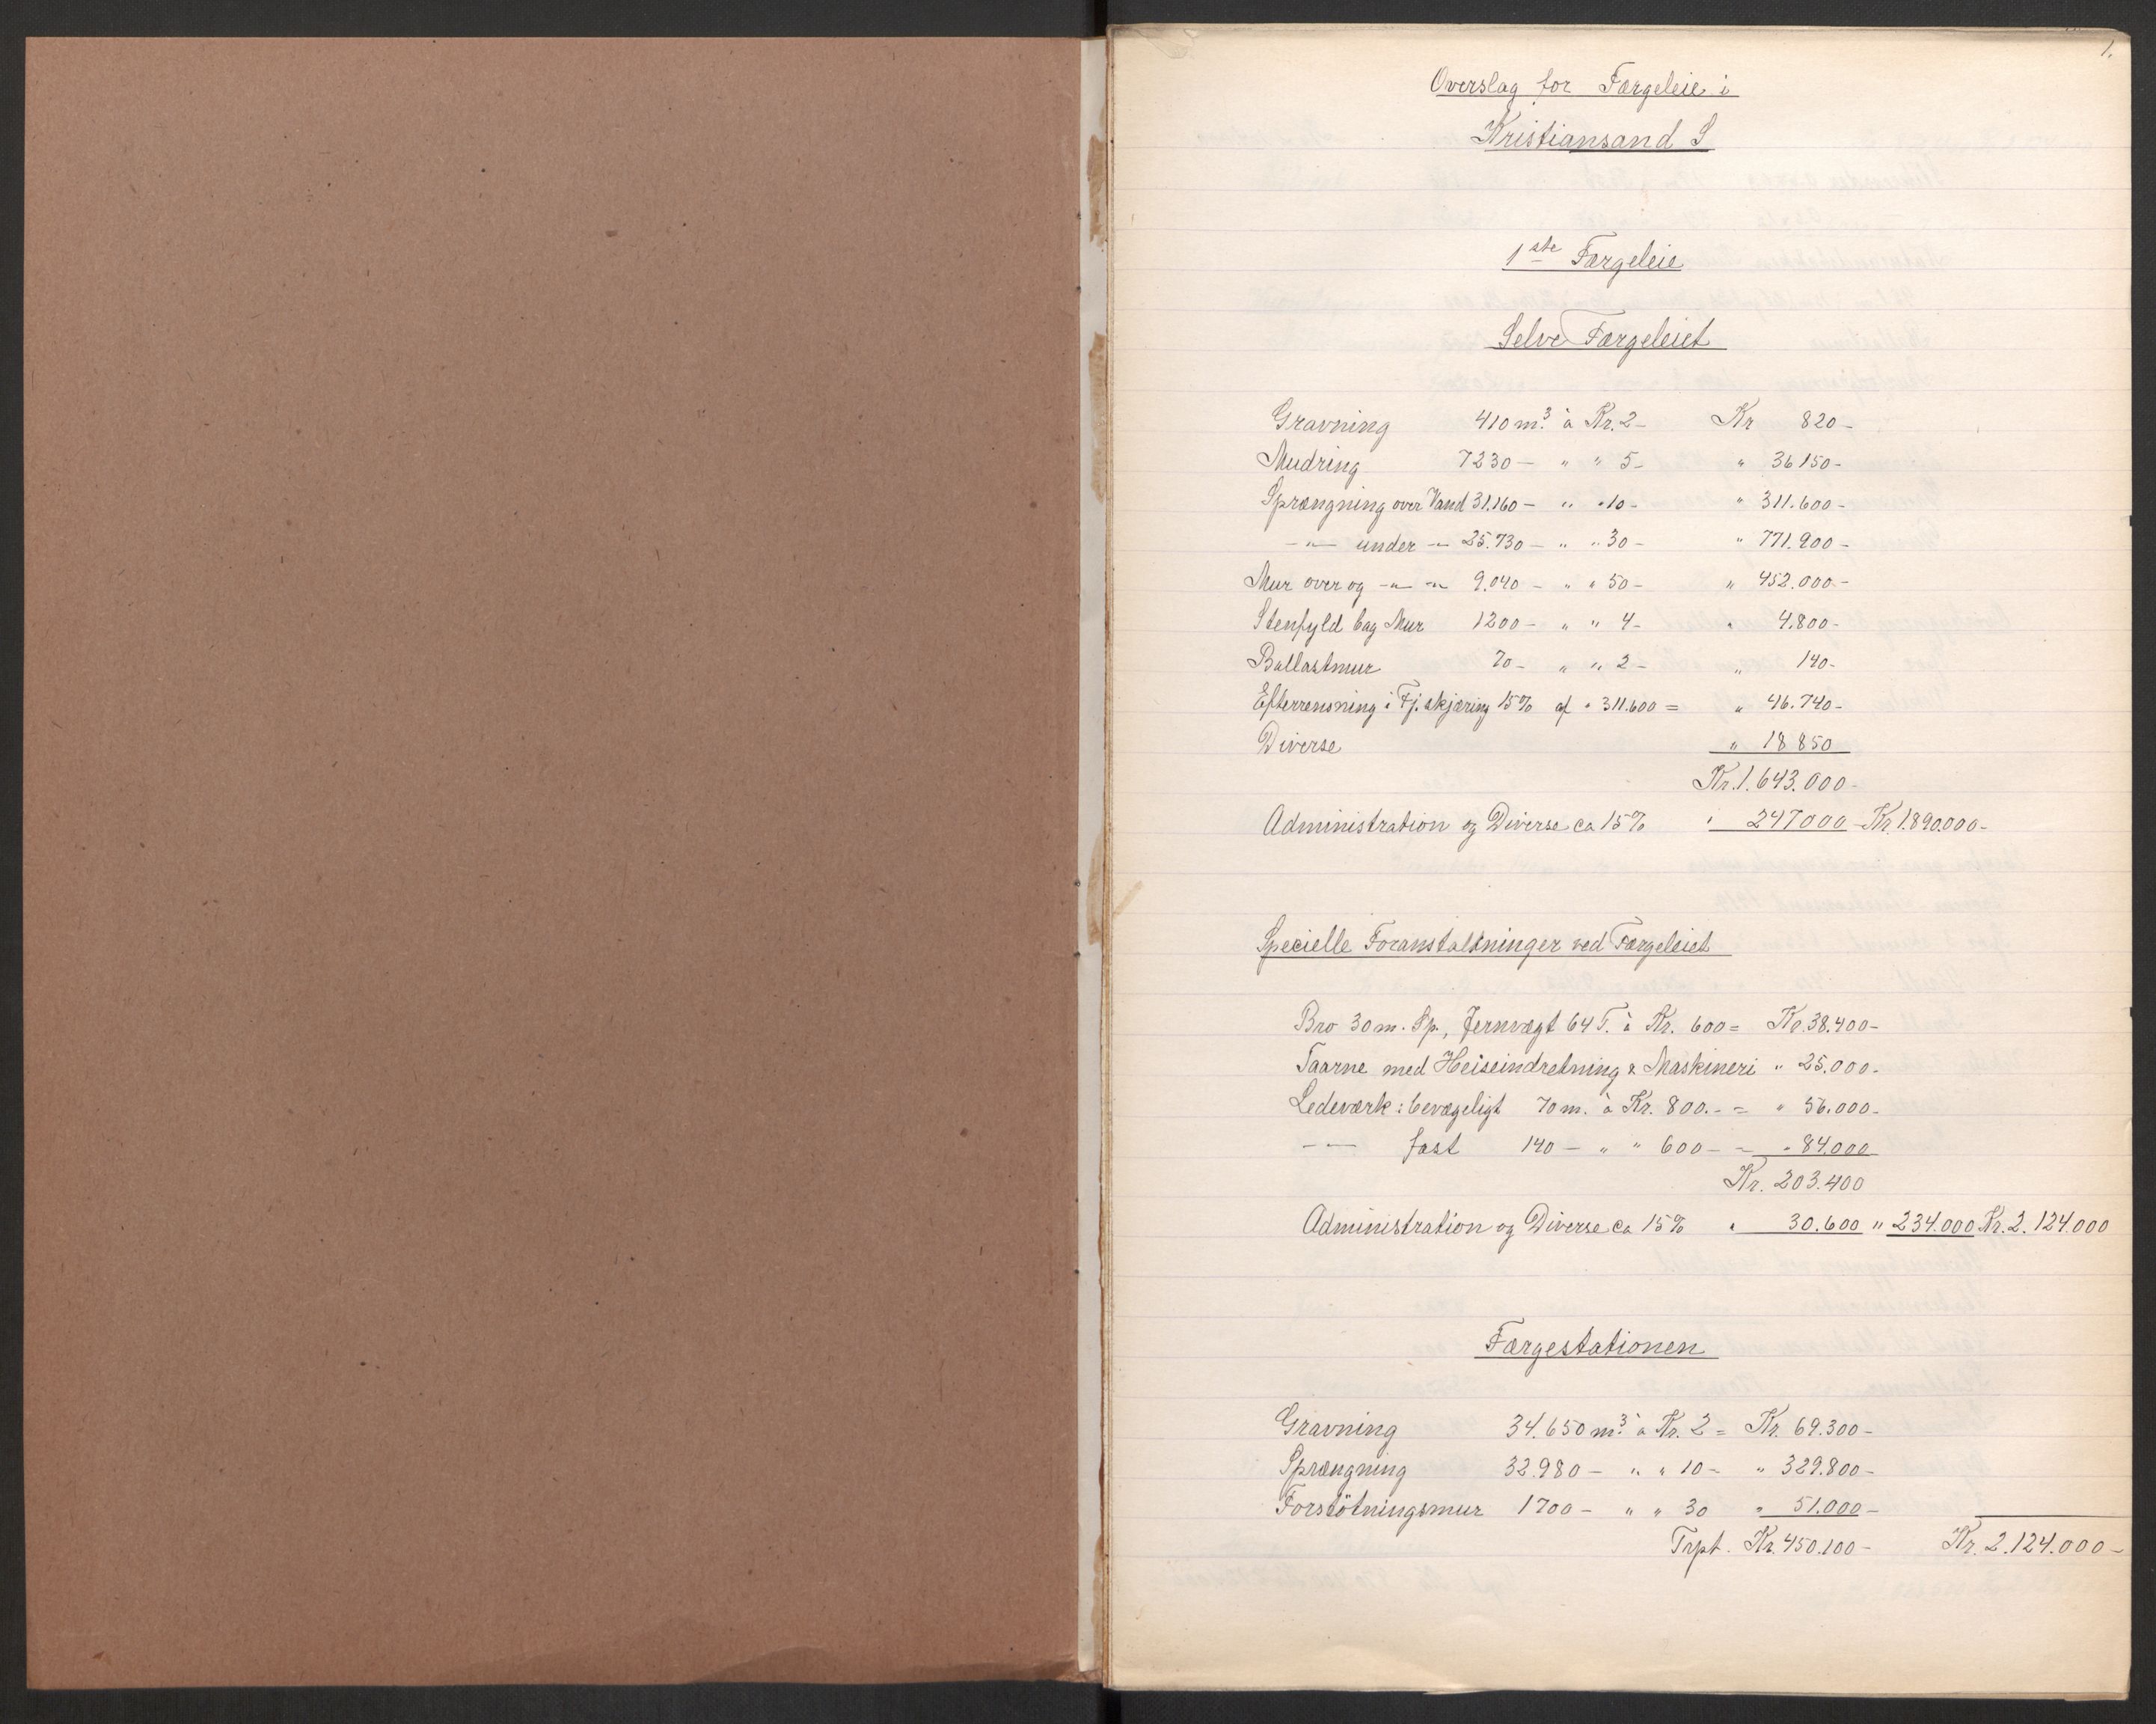 1.
Overslag for Færgeleie i
Kristiansand S
1ste Færgeleie
Selve Færgeleiet
Gravning 410 m.3 à Kr. 2- Kr 820-
Mudring 7230- " " 5- " 36150-
Sprængning over Vand 31.160- " " 10- " 311.600-
-"- under -"- 25.730- " " 30- " 771.900-
Mur over og -"- -"- 9.040- " " 50- " 452.000-
Stenfyld bag Mur 1200- " " 4- " 4.800-
Ballastmur 70- " " 2- " 140-
Efterrensning i Fj.skjæring 15% af " 311.600 = " 46.740-
Diverse " 18850
Kr. 1.643.000-
Administration og Diverse ca 15% " 247000- Kr. 1.890.000-
Specielle Foranstaltninger ved Færgeleiet
Bro 30 m. Sp., Jernvægt 64 T. à Kr. 600 = Kr. 38.400-
Taarne med Heiseindretning & Maskineri " 25.000-
Ledeværk: bevægeligt 70 m. à Kr. 800.- = " 56.000-
-"- fast 140- " " 600- = " 84.000
Kr. 203.400
Administration og Diverse ca 15% " 30.600 " 234.000 Kr. 2.124.000
Færgestationen
Gravning 34.650 m.3 à Kr. 2 = Kr. 69.300-
Sprængning 32.980- " " 10- " 329.800-
Forstötningsmur 1700- " " 30 " 51.000-
Trpt. Kr. 450.100- Kr. 2.124.000-